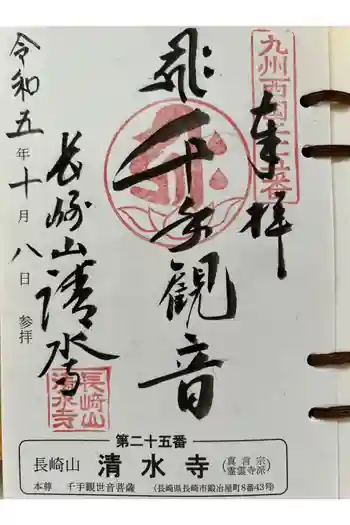 九州西国二十五番
奉拝
千手観音
長崎山清水寺
令和五年十月八日 参拝
長崎山
清水寺
第二十五番
長崎山 清水寺 (真言宗霊雲寺派)
本尊 千手観世音菩薩 (長崎県長崎市鍛冶屋町8番43号)